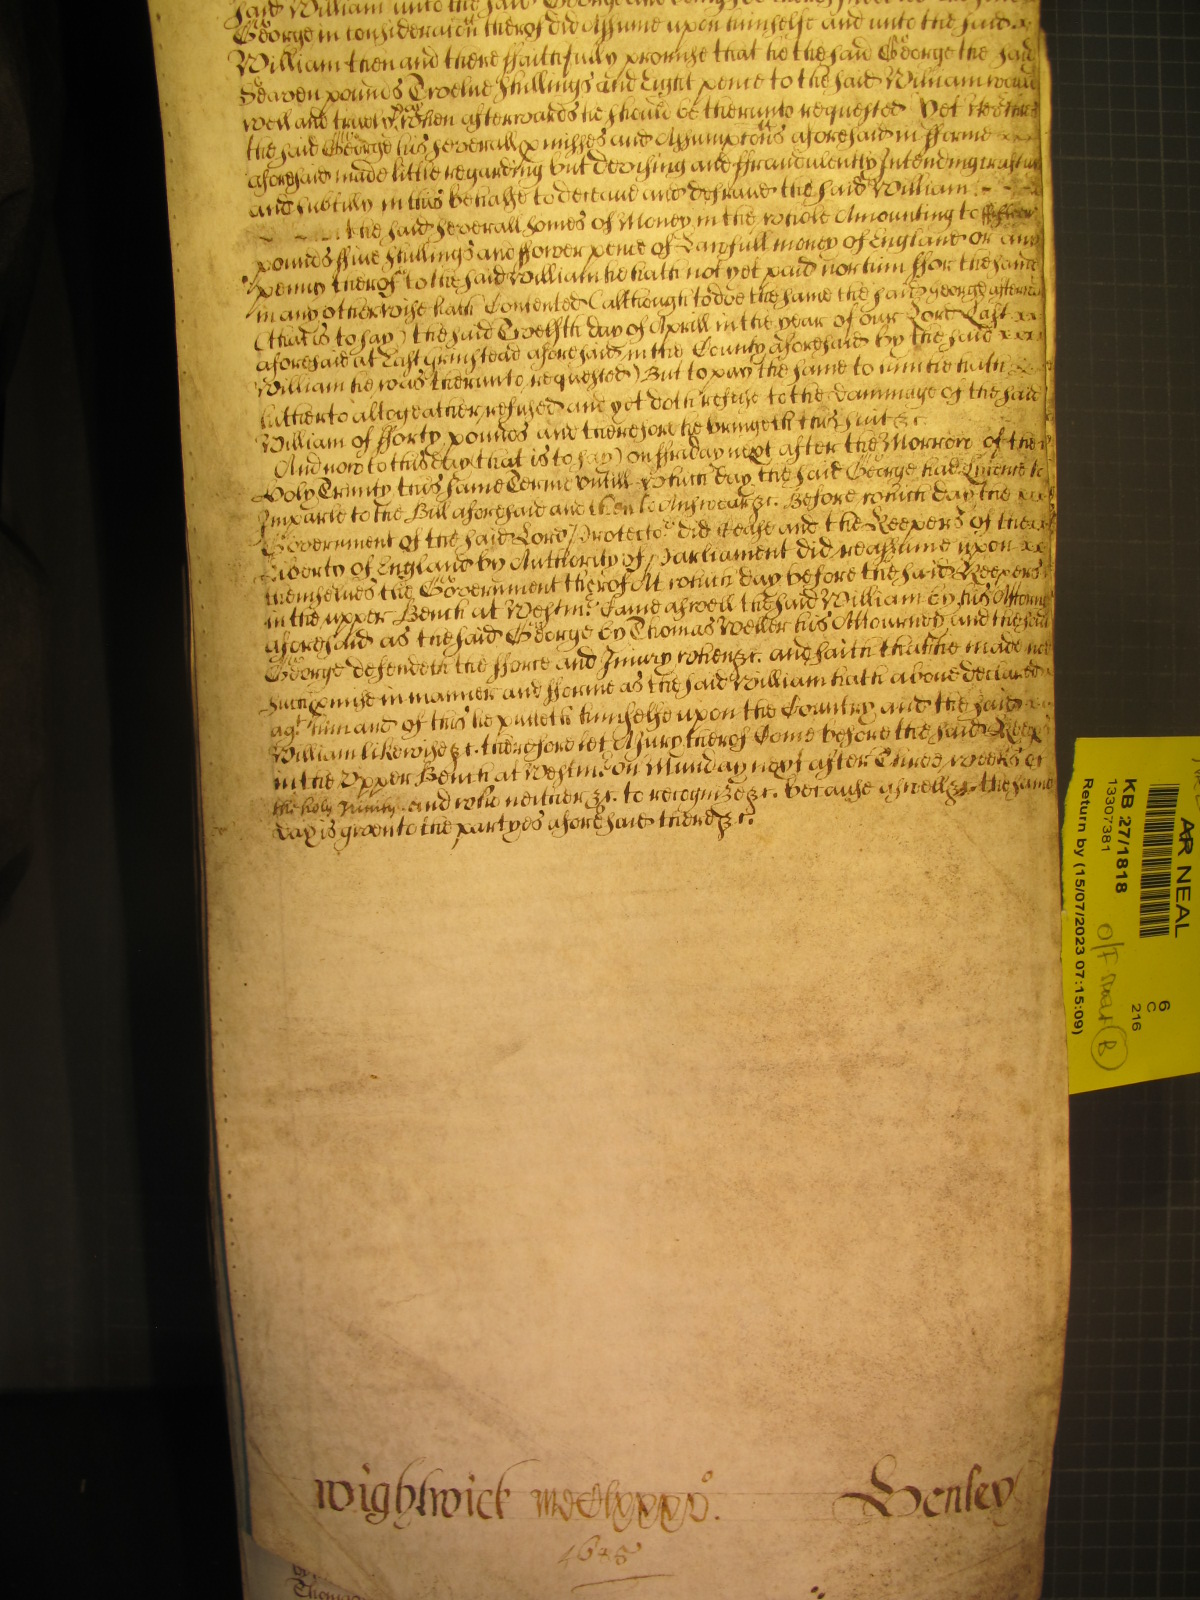 said William unto the said George
George in consideracon therof did Assume upon himselfe and unto the said
William then and there ffaithfully promise that he the said George the said
Seaven pounds Twelve shillings and Eight pence to the said William would
well and truly pay when afterwards he should be therunto requested Yet
the said George his severall pmisses and Assumptons aforesaid in fforme
aforesaid made little regarding but devising and ffraudulently Intending craftily
and subtilly in this behalfe to deceave and defraud the said William
the said severall somes of Money in the whole Amounting to
pounds ffive shillings and ffower pence of Lawfull money of England or any
penny therof to the said William he hath not yet paid nor him ffor the same
in any otherwise hath Contented (although to doe the same the said george afterwards
(that is to say) the said Twelfth day of Aprill in the year of our Lord Last
aforesaid at East Grinstead aforesaid in the County aforesaid by the said
William he was therunto requested) But to pay the same to him he hath
hitherto altogeather refused and yet doth refuse to the dammage of the said
William of fforty pounds and therefore he bringeth this suit &c.
And now to this day (that is to say) on ffriday next after the Morrow of the
Holy Trinity this same Terme untill which day the said George had Licence to
Imparle to the Bill aforesaid and then to Answear &c. Before which day the
Government of the said Lord Protector did cease and the Keepers of the
Liberty of England by Authority of Parliament did reassume upon
themselves the Government therof At which day before the said Keepers
in the upper Bench at Westmr Came aswell the said William by his Attorney
aforesaid as the said George by Thomas Weller his Attourney and the said
George defendeth the fforce and Injury when &c. and saith that he made not
such pmise in manner and fforme as the said William hath above declared
agt him and of this he putteth himselfe upon the Country and the said
William likewise &c. therefore let A Jury therof Come before the said Keeps
in the Upper Bench at Westmr on Munday next after Three weeks of
the holy Trinity and who neither &c. to recognize &c. because aswell &c. the same
day is given to the partyes aforesaid there &c.
AR NEAL
KB 27/1818
13307381
Return by (15/07/2023 07:15:09)
6
C
216
B
Wightwick
Henley
Thomas